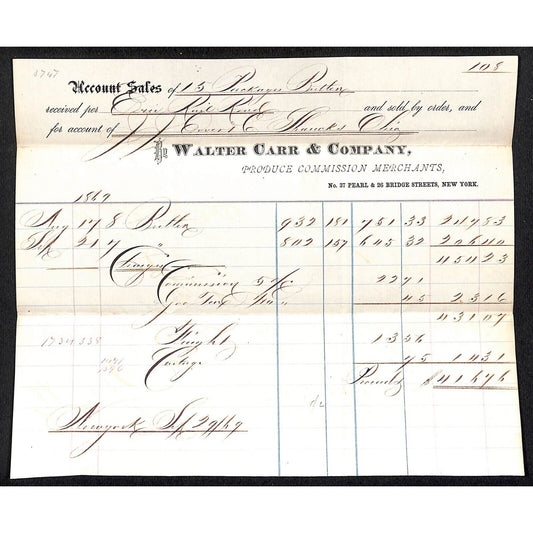 3747
108
Account Sales of 15 Packages Butter
received per Erie Rail Road and sold by order, and
for account of Evert E Ohio
By WALTER CARR & COMPANY,
PRODUCE COMMISSION MERCHANTS,
No. 37 PEARL & 26 BRIDGE STREETS, NEW YORK.
1869
Aug 17 8 Butter 932 181 751 33 247 83
Sep 21 7 " 802 157 645 32 206 40
454 23
Charges
Commission 5 % 22 71
Gov Tax 45 23 16
431 07
1734.338
Freight 13 56
Cartage 75 14 31
Proceeds $416 76
Newyork Sep 29/69